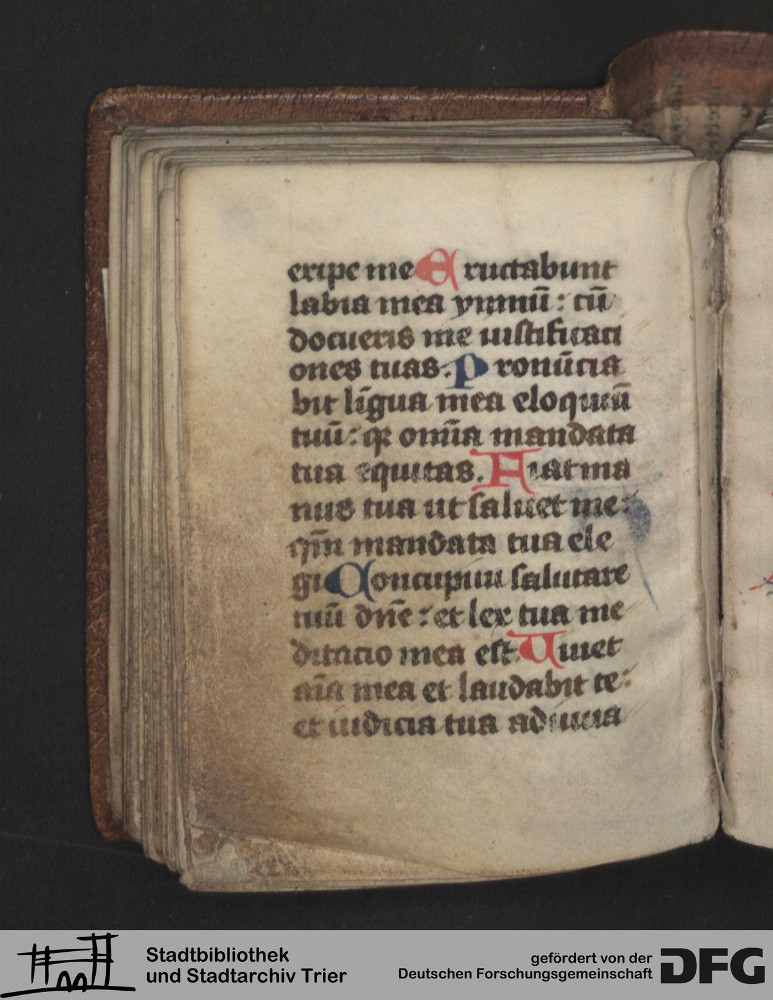 eripe me Eructabunt
labia mea ymnū : cū
docueris me iustificati
ones tuas. Pronūcia
bit līgua mea eloquiū
tuū : qr̄ om̄ia mandata
tua equitas. Fiat ma
nus tua ut saluet me :
qm̄ mandata tua ele
gi Concupiui salutare
tuū dn̄e : et lex tua me
ditacio mea est. Uiuet
aīa mea et laudabit te :
et iudicia tua adiuua
Stadtbibliothek
und Stadtarchiv Trier
gefördert von der
Deutschen Forschungsgemeinschaft DFG